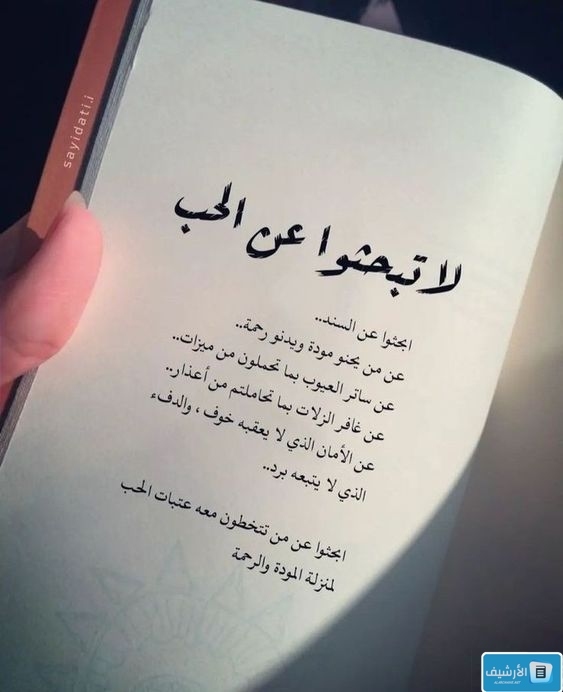 sayidati.i
لا تبحثوا عن الحب
ابحثوا عن السند..
عن من يحنو مودة ويدنو رحمة..
عن ساتر العيوب بما تحملون من ميزات..
عن غافر الزلات بما تحاملتم من أعذار..
عن الأمان الذي لا يعقبه خوف ، والدفء
الذي لا يتبعه برد..
ابحثوا عن من تتخطون معه عتبات الحب
لمنزلة المودة والرحمة
الأرشيف